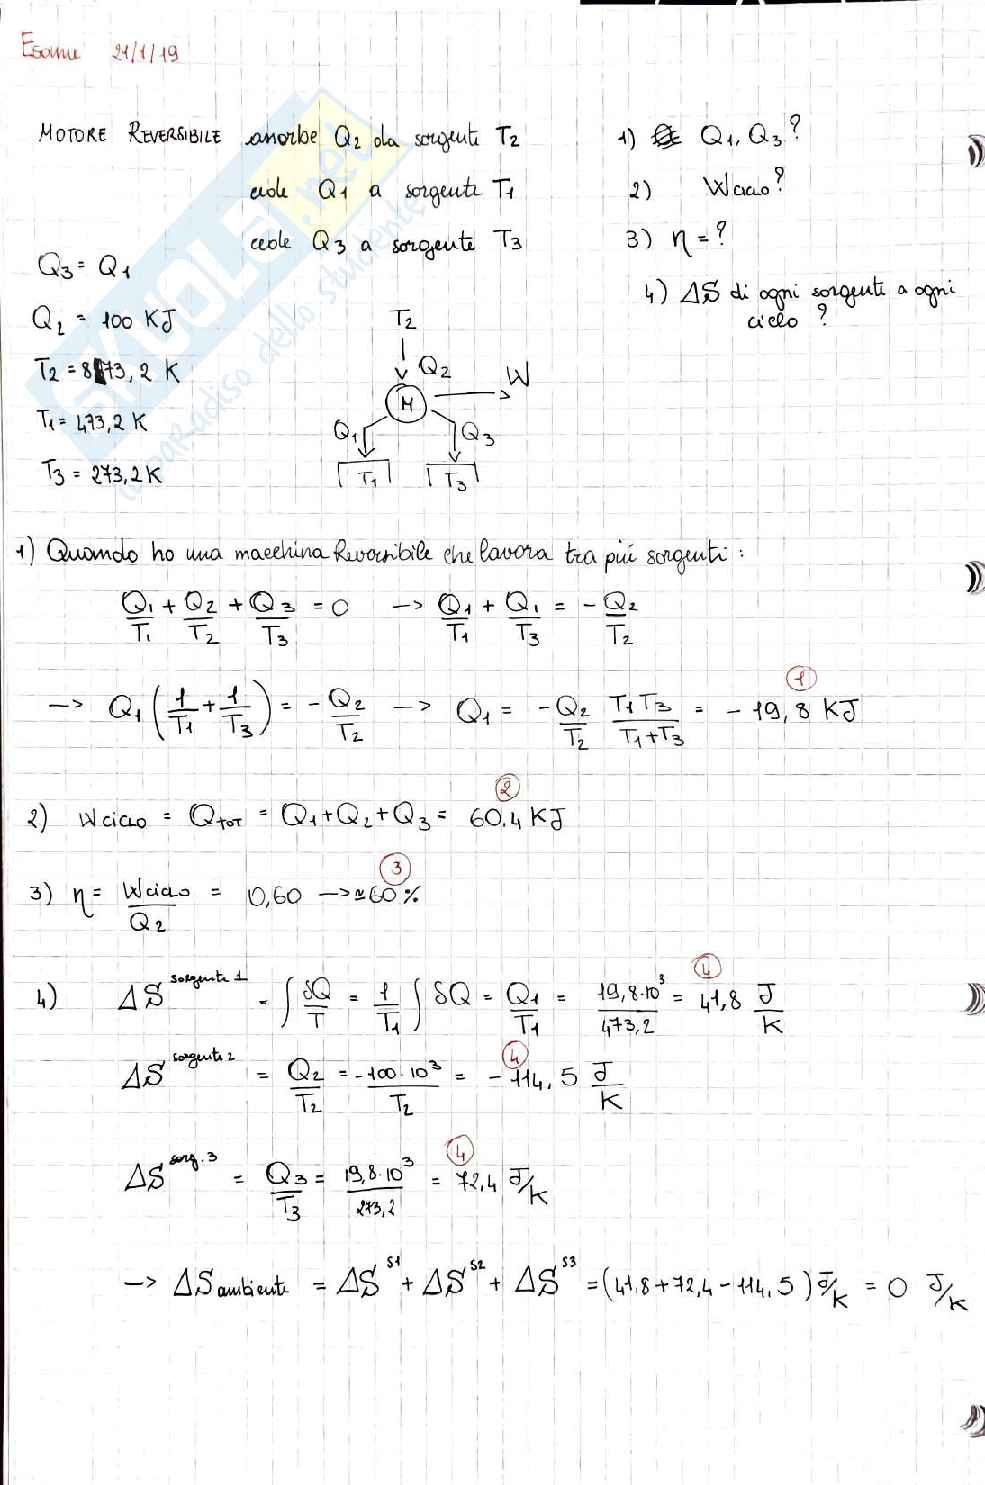 Esame 21/1/19
MOTORE REVERSIBILE assorbe Q2 da sorgente T2
cede Q1 a sorgente T1
cede Q3 a sorgente T3
1) Q1, Q3?
2) Wciclo?
3) η = ?
4) ΔS di ogni sorgente a ogni
ciclo?
Q3 = Q1
Q2 = 100 KJ
T2 = 873,2 K
T1 = 473,2 K
T3 = 273,2 K
T2
Q2
W
M
Q1
Q3
T1
T3
SKUOLA.net
il paradiso dello studente
1) Quando ho una macchina Reversibile che lavora tra più sorgenti:
Q1/T1 + Q2/T2 + Q3/T3 = 0 -> Q1/T1 + Q1/T3 = - Q2/T2
-> Q1 (1/T1 + 1/T3) = - Q2/T2 -> Q1 = - Q2/T2 T1T3/T1+T3 = - 19,8 KJ ①
2) Wciclo = QTOT = Q1 + Q2 + Q3 = 60.4 KJ ②
3) η = Wciclo/Q2 = 0,60 -> ≅ 60 % ③
4) ΔS sorgente 1 = ∫ δQ/T = 1/T1 ∫ δQ = Q1/T1 = 19,8·10³/473,2 = 41,8 J/K ④
ΔS sorgente 2 = Q2/T2 = -100·10³/T2 = - 114,5 J/K ④
ΔS sorg. 3 = Q3/T3 = 19,8·10³/273,2 = 72,4 J/K ④
-> ΔS ambiente = ΔS S1 + ΔS S2 + ΔS S3 = (41,8 + 72,4 - 114,5) J/K = 0 J/K